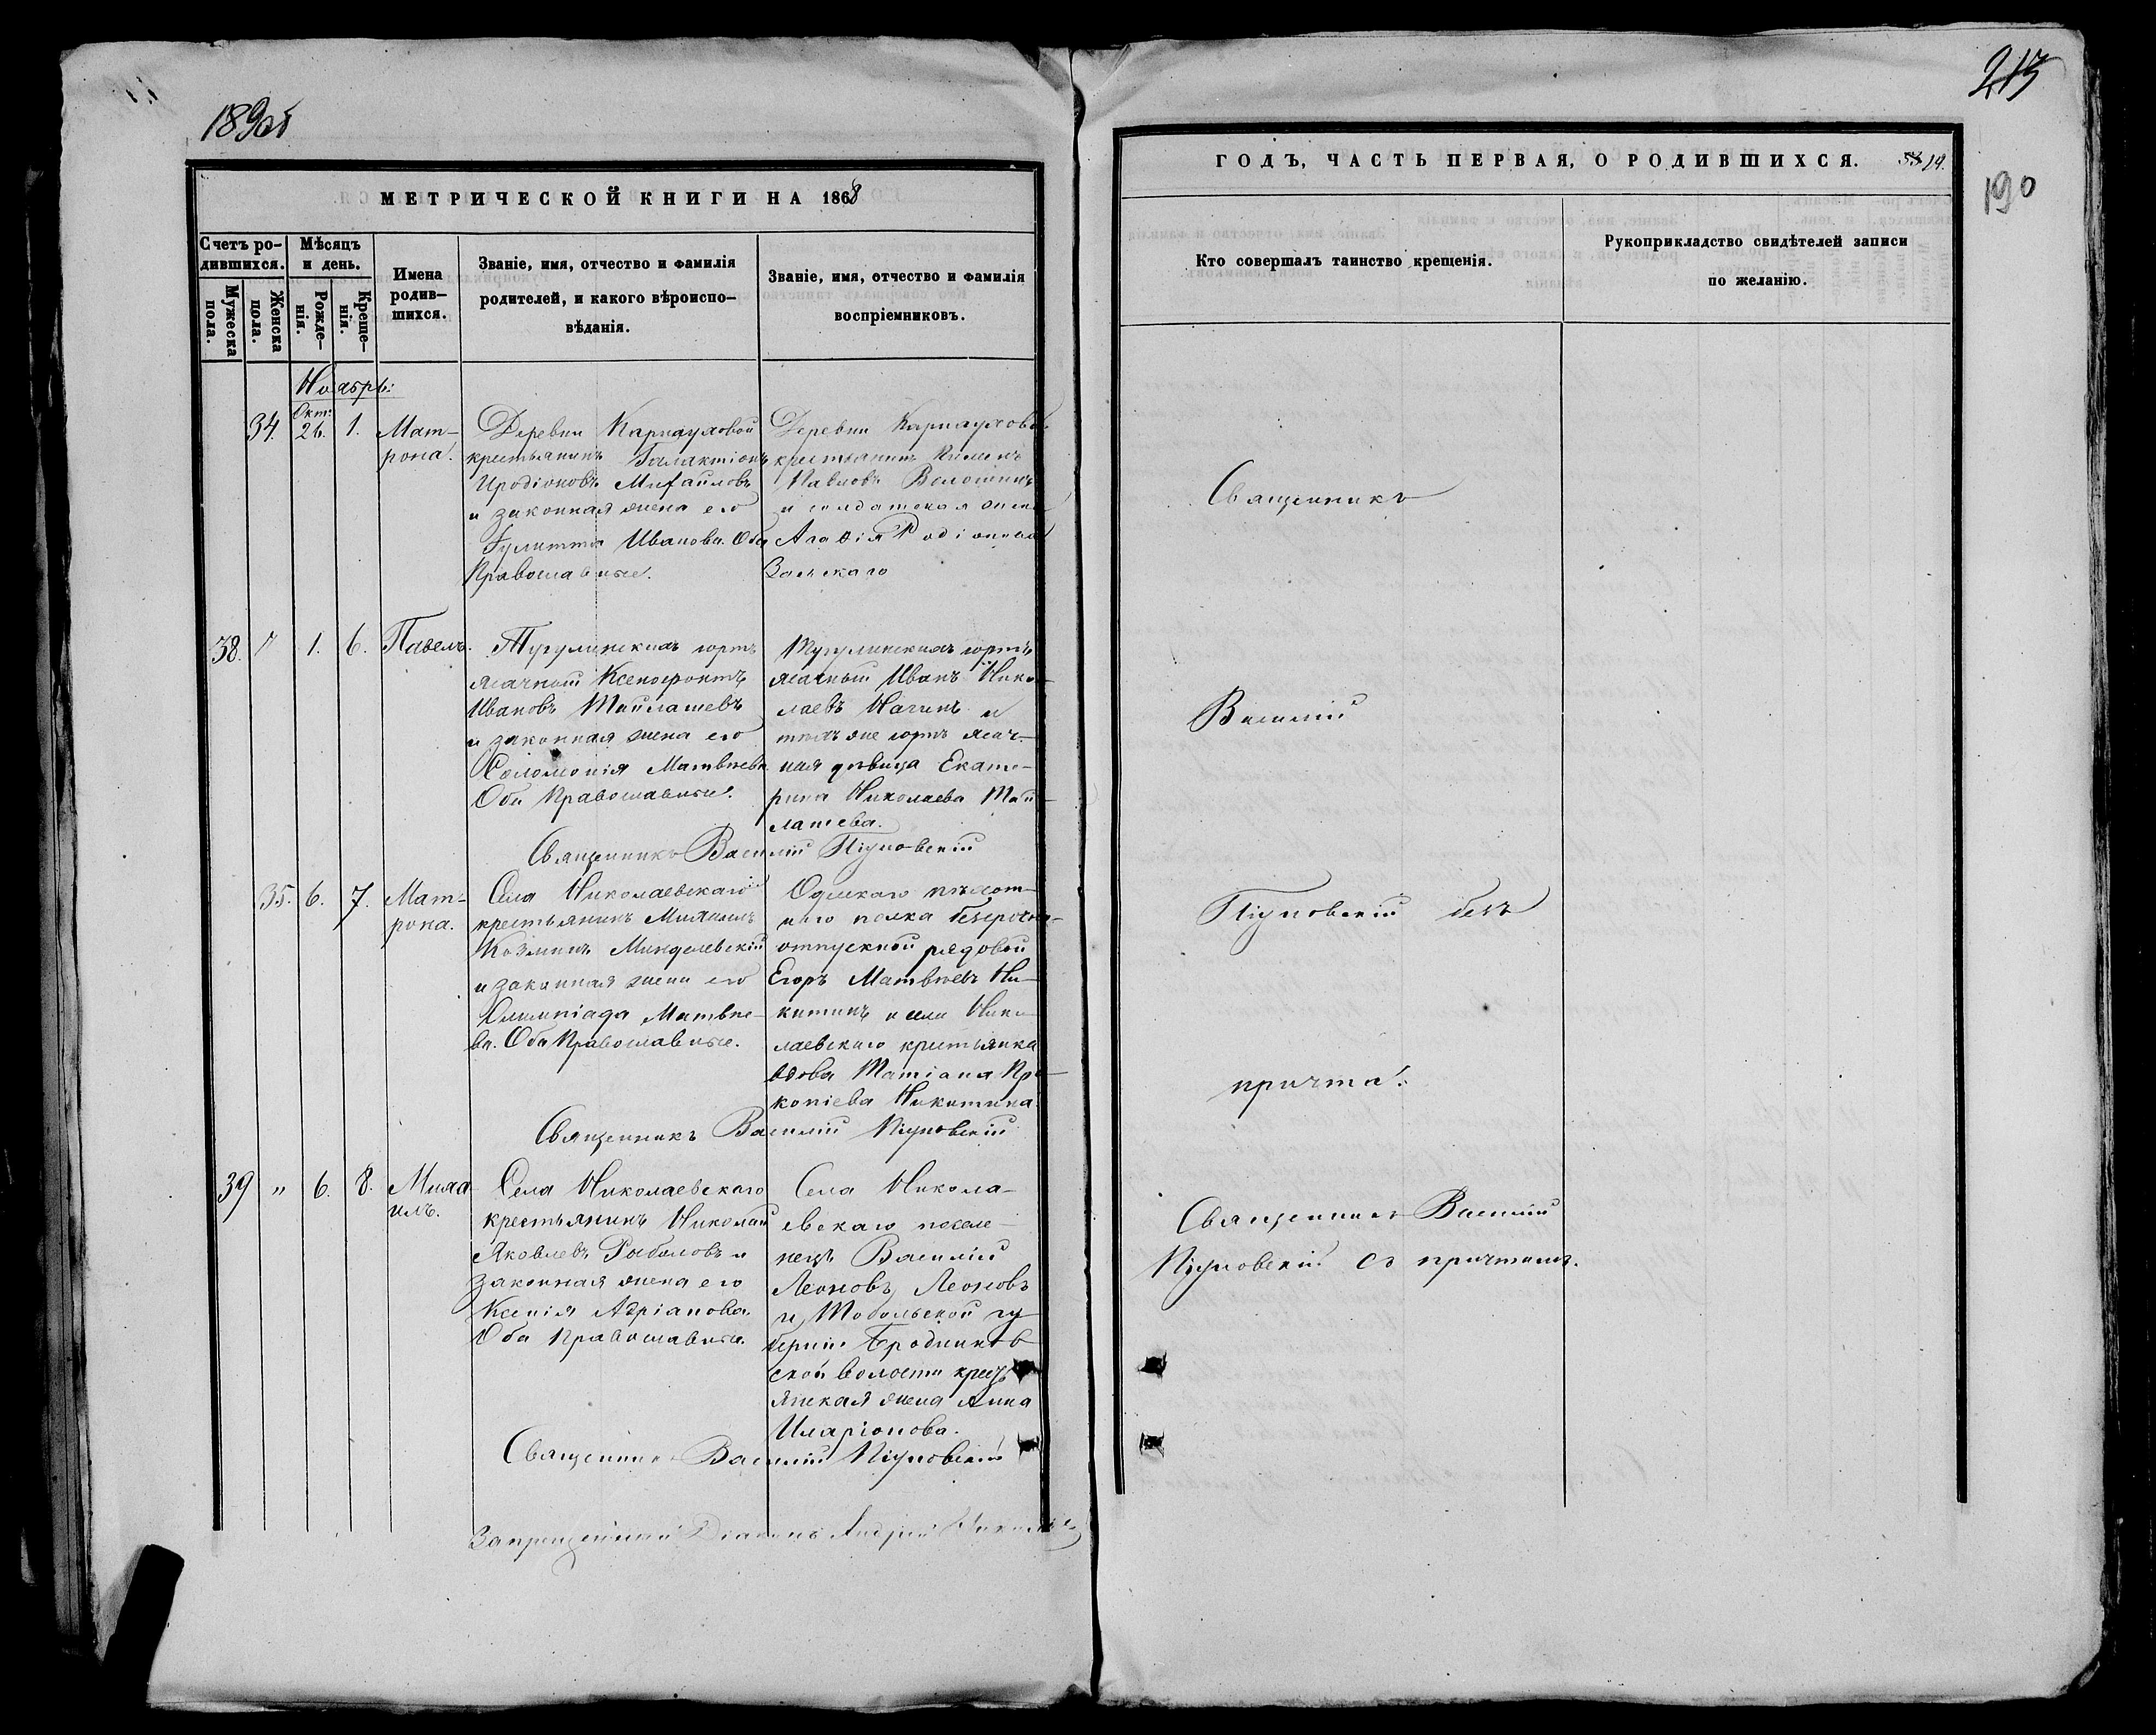 189об
МЕТРИЧЕСКОЙ КНИГИ НА 1868
Счетъ ро-
дившихся.
Мужеска
пола.
Женска
пола.
Мѣсяцъ
и день.
Рожде-
нія.
Креще-
нія.
Имена
родив-
шихся.
Званіе, имя, отчество и фамилія
родителей, и какого вѣроиспо-
вѣданія.
Званіе, имя, отчество и фамилія
воспріемниковъ.
Ноябрь:
34. Окт: 26. 1.
Мат-
рона.
Деревни Карнауховой
крестьянинъ Галактіонъ
Иродіоновъ Михайловъ
и законная жена его
Іулитта Иванова. Оба
Православные.
Деревни Карнауховой
крестьянинъ Пименъ
Павловъ Волошинъ
и солдатская жена
Агафія Родіонова
38. " 1. 6. Павелъ.
Тугулинскихъ юртъ
ясачный Ксенофонтъ
Ивановъ Тайлашевъ
и законная жена его
Соломонія Матвѣева
Оба Православные.
Тугулинскихъ юртъ
ясачный Иванъ Нико-
лаевъ Начинъ и
тѣхъ же юртъ ясач-
ная дѣвица Екате-
рина Николаева Тай-
лашева.
Священникъ Василій Піуновскій
35. 6. 7.
Мат-
рона.
Села Николаевскаго
крестьянинъ Михаилъ
Козминъ Минделевскій
и законная жена его
Олимпіада Матвѣе-
ва. Оба Православные.
Одескаго пѣхот-
наго полка безсрочно-
отпускной рядовой
Егоръ Матвѣевъ Ни-
китинъ и села Нико-
лаевскаго крестьянка
вдова Татіана Про-
копіева Никитина.
Священникъ Василій Піуновскій
39 " 6. 8.
Миха-
илъ.
Села Николаевскаго
крестьянинъ Николай
Яковлевъ Рыболовъ и
законная жена его
Ксенія Адріанова.
Оба Православные.
Села Никола-
евскаго поселе-
нецъ Василій
Леоновъ Леоновъ
и Тобольской гу-
берніи Бродников-
ской волости кресть
янская жена Анна
Иларіонова.
Священникъ Василій Піуновскій
Запрещенный Діаконъ Андрей
213
ГОДЪ, ЧАСТЬ ПЕРВАЯ, О РОДИВШИХСЯ.
19.
190
Кто совершалъ таинство крещенія.
Рукоприкладство свидѣтелей записи
по желанію.
Священникъ
Василій
Піуновскій безъ
причта.
Священникъ Василій
Піуновскій съ причтомъ.